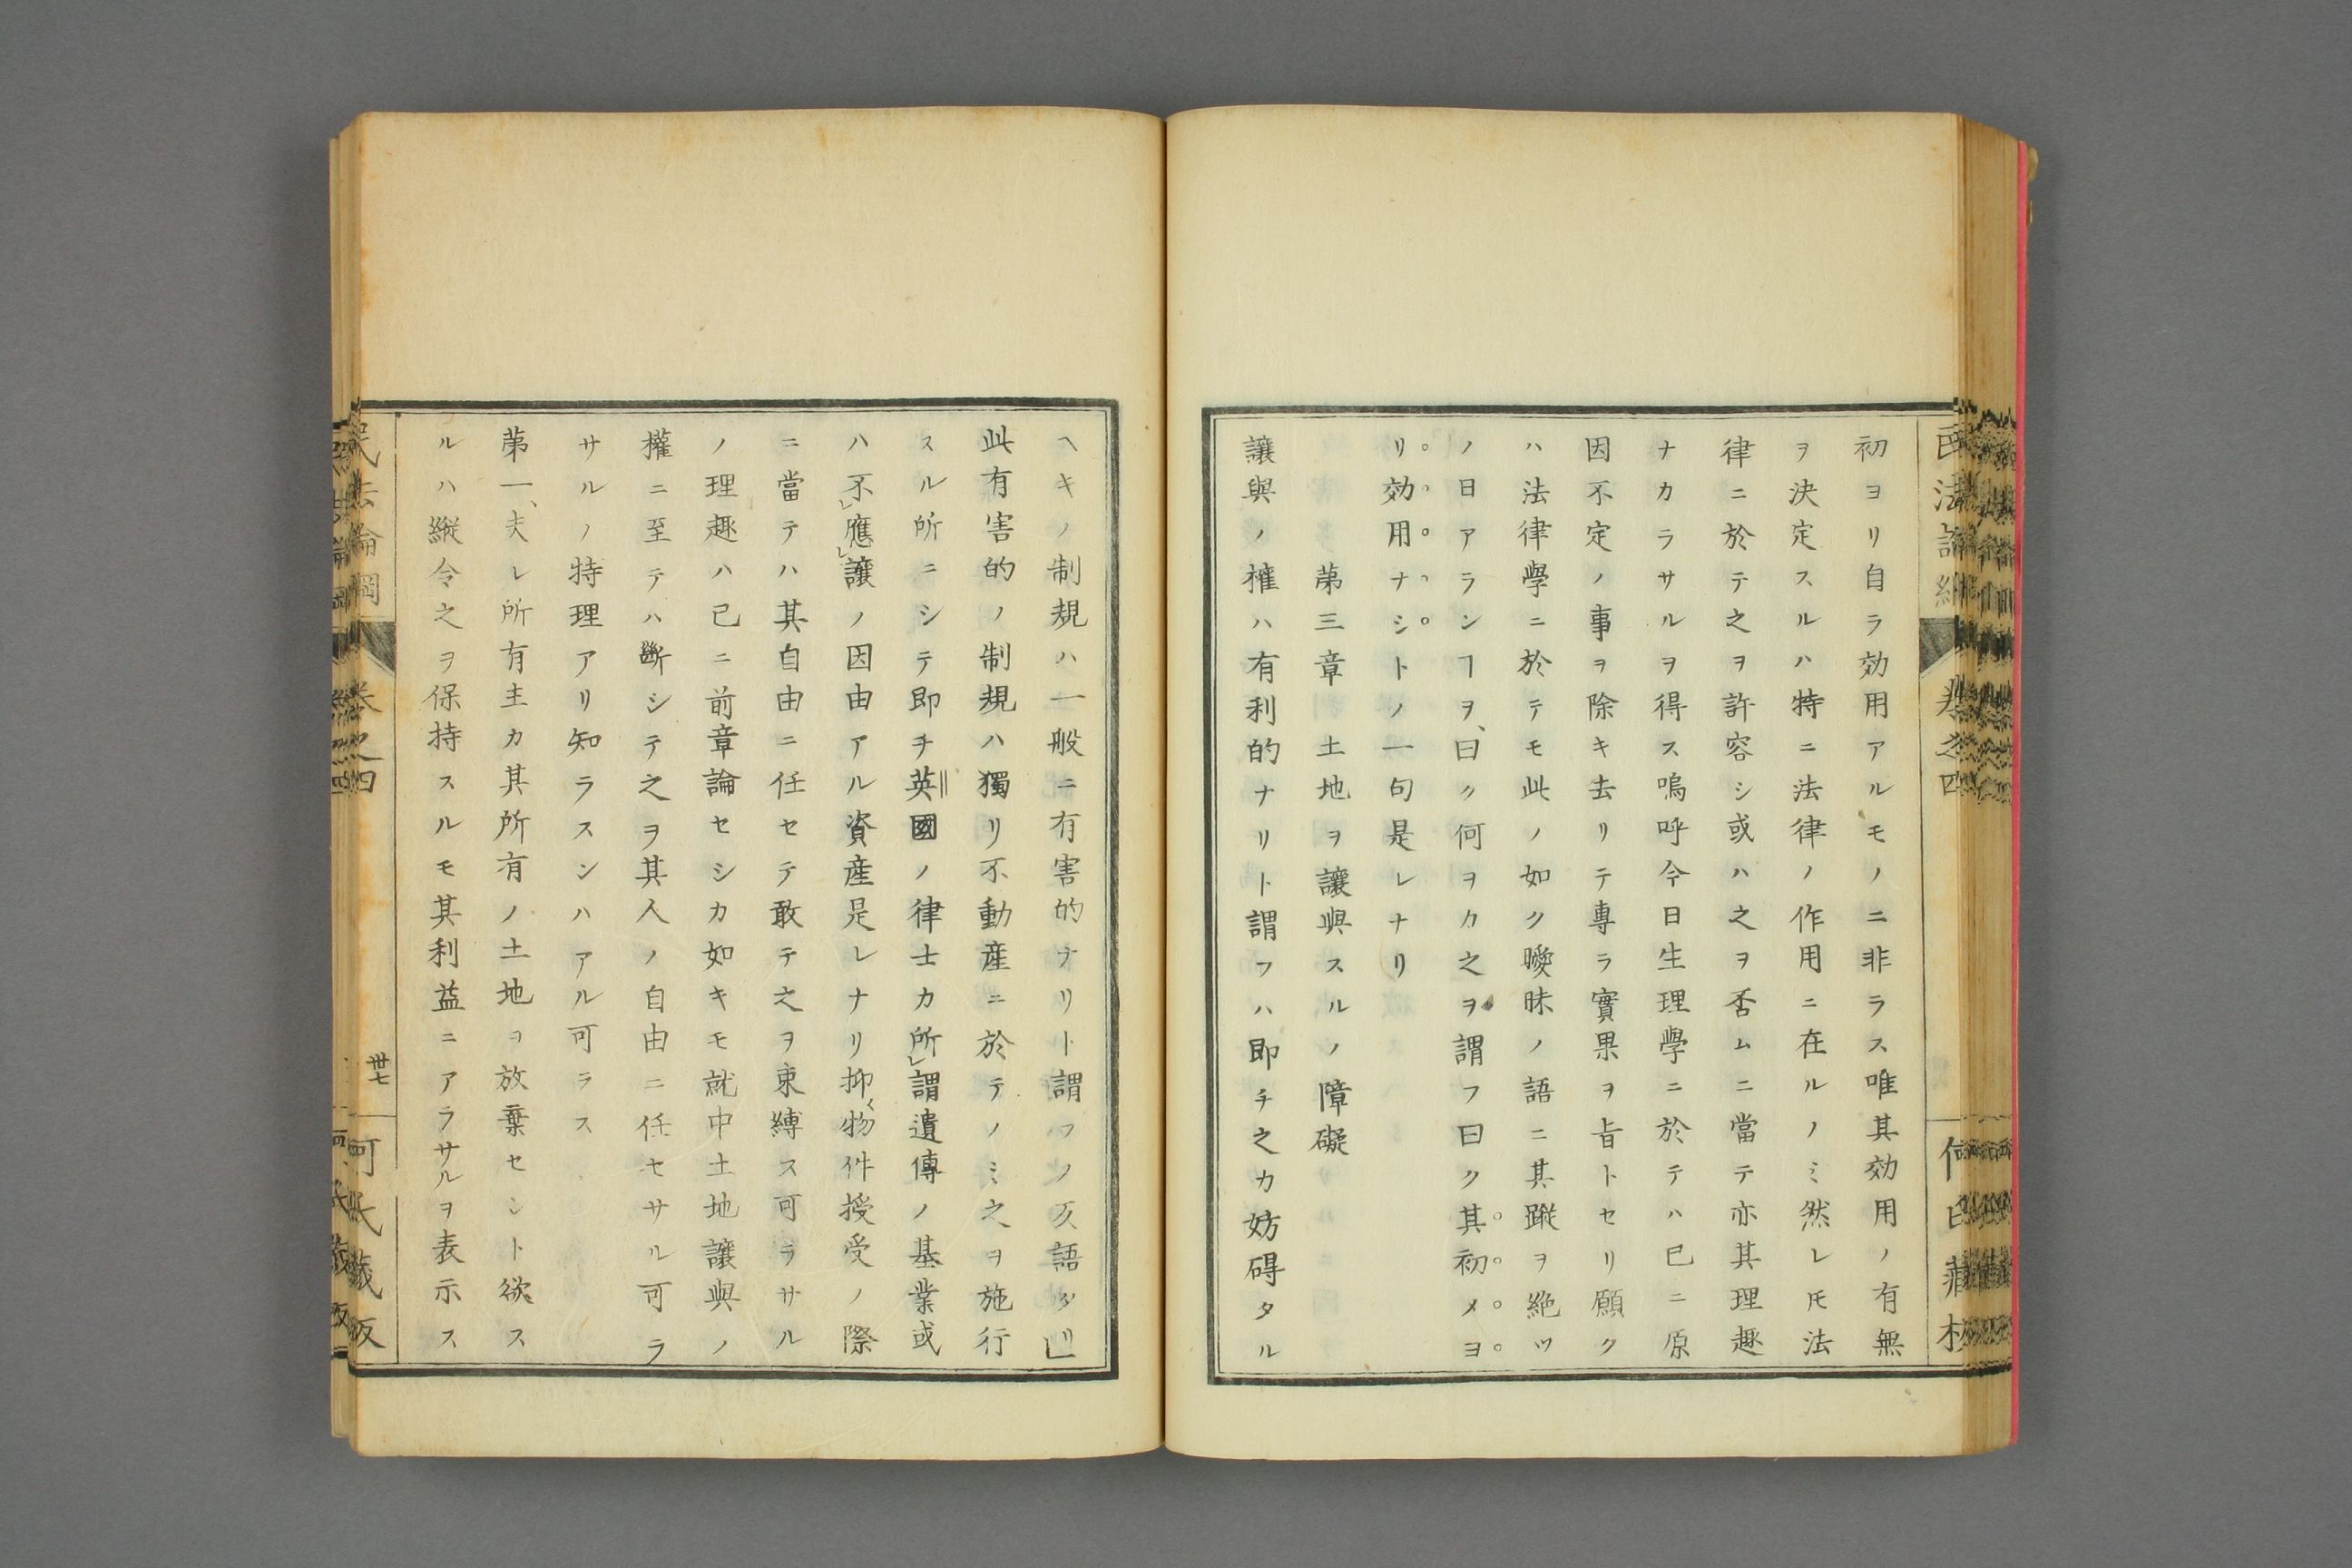 初ヨリ自ラ効用アルモノニ非ラス唯其効用ノ有無
ヲ決定スルハ特ニ法律ノ作用ニ在ルノミ然レ𪜈法
律ニ於テ之ヲ許容シ或ハ之ヲ否ムニ當テ亦其理趣
ナカラサルヲ得ス嗚呼今日生理學ニ於テハ已ニ原
因不定ノ事ヲ除キ去リテ專ラ實果ヲ旨トセリ願ク
ハ法律學ニ於テモ此ノ如ク曖昧ノ語ニ其蹤ヲ絶ツ
ノ日アランヿヲ、曰ク何ヲカ之ヲ謂フ曰ク其初メヨ
リ効用ナシトノ一句是レナリ
第三章 土地ヲ讓與スルノ障礙
讓與ノ權ハ有利的ナリト謂フハ即チ之カ妨碍タル
ヘキノ制規ハ一般ニ有害的ナリト謂フノ反語タリ」
此有害的ノ制規ハ獨リ不動産ニ於テノミ之ヲ施行
スル所ニシテ即チ英國ノ律士カ所レ謂遺傳ノ基業或
ハ不レ應レ讓ノ因由アル資産是レナリ抑〻物件授受ノ際
ニ當テハ其自由ニ任セテ敢テ之ヲ束縛ス可ラサル
ノ理趣ハ已ニ前章論セシカ如キモ就中土地讓與ノ
權ニ至テハ斷シテ之ヲ其人ノ自由ニ任セサル可ラ
サルノ特理アリ知ラスンハアル可ラス
第一、夫レ所有主カ其所有ノ土地ヲ放棄セント欲ス
ルハ縱令之ヲ保持スルモ其利益ニアラサルヲ表示ス
民法論綱 卷之四 卅七 何氏藏版